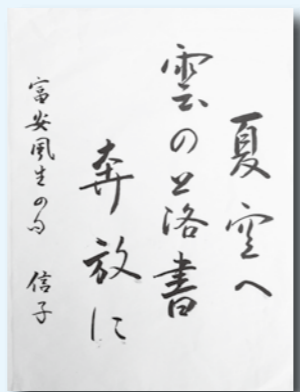 夏空へ
雲の落書
奔放に
富安風生の句 信子